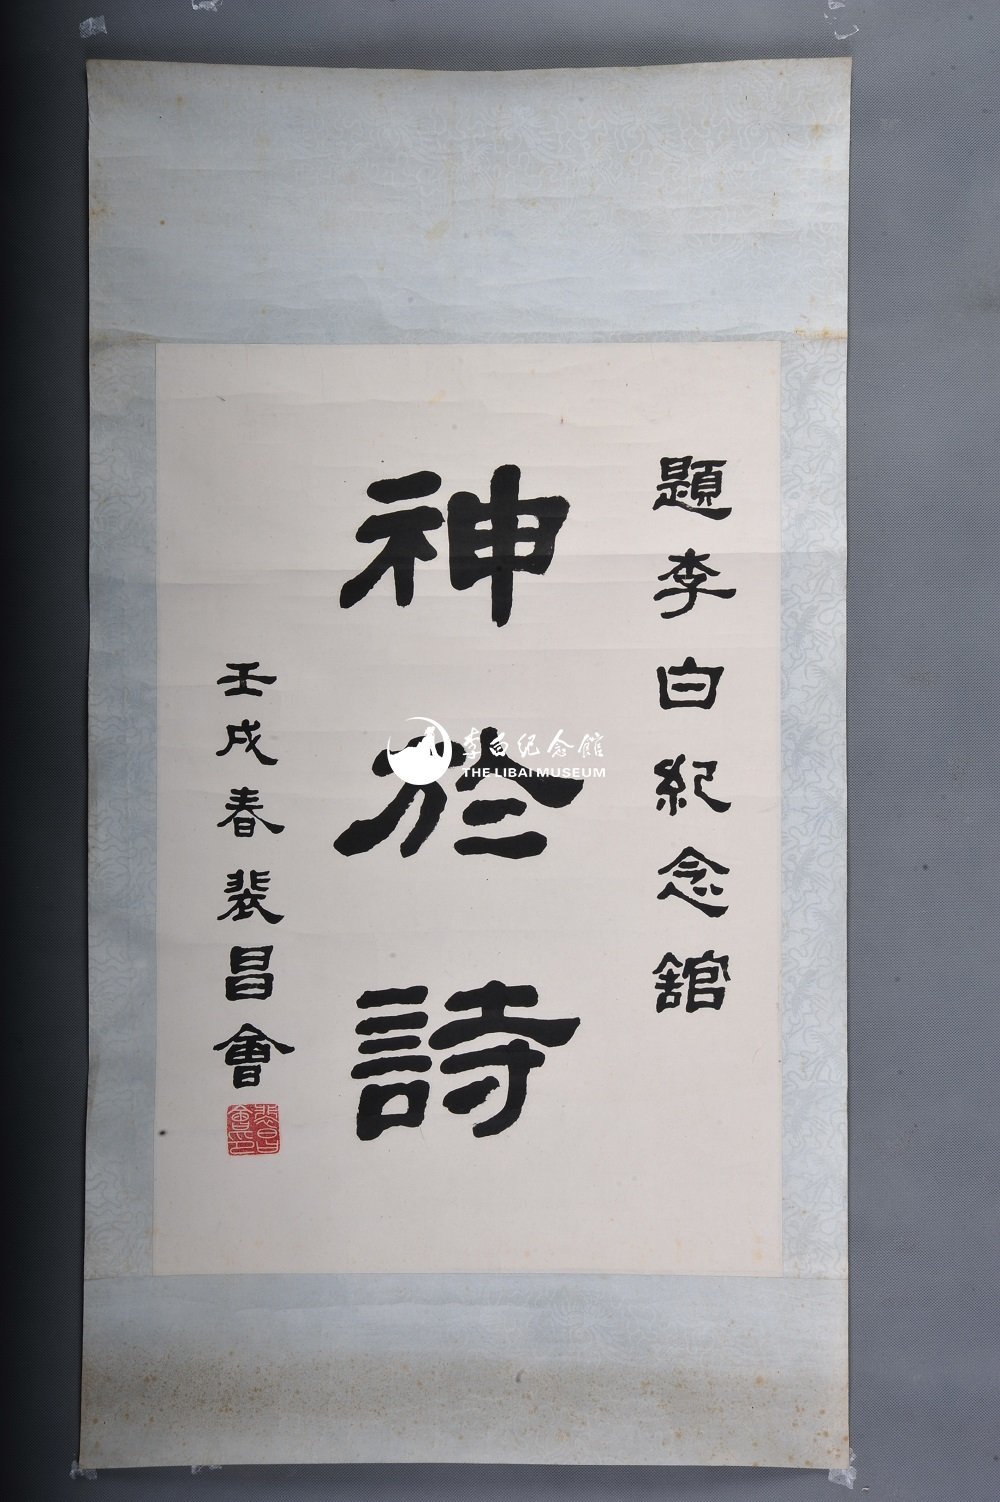 題李白紀念館
神於詩
壬戌春裴昌會
裴昌會印
李白纪念館
THE LIBAI MUSEUM